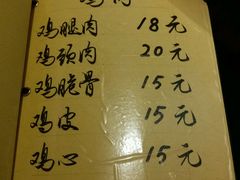 鸡腿肉 18元
鸡颈肉 20元
鸡脆骨 15元
鸡皮 15元
鸡心 15元